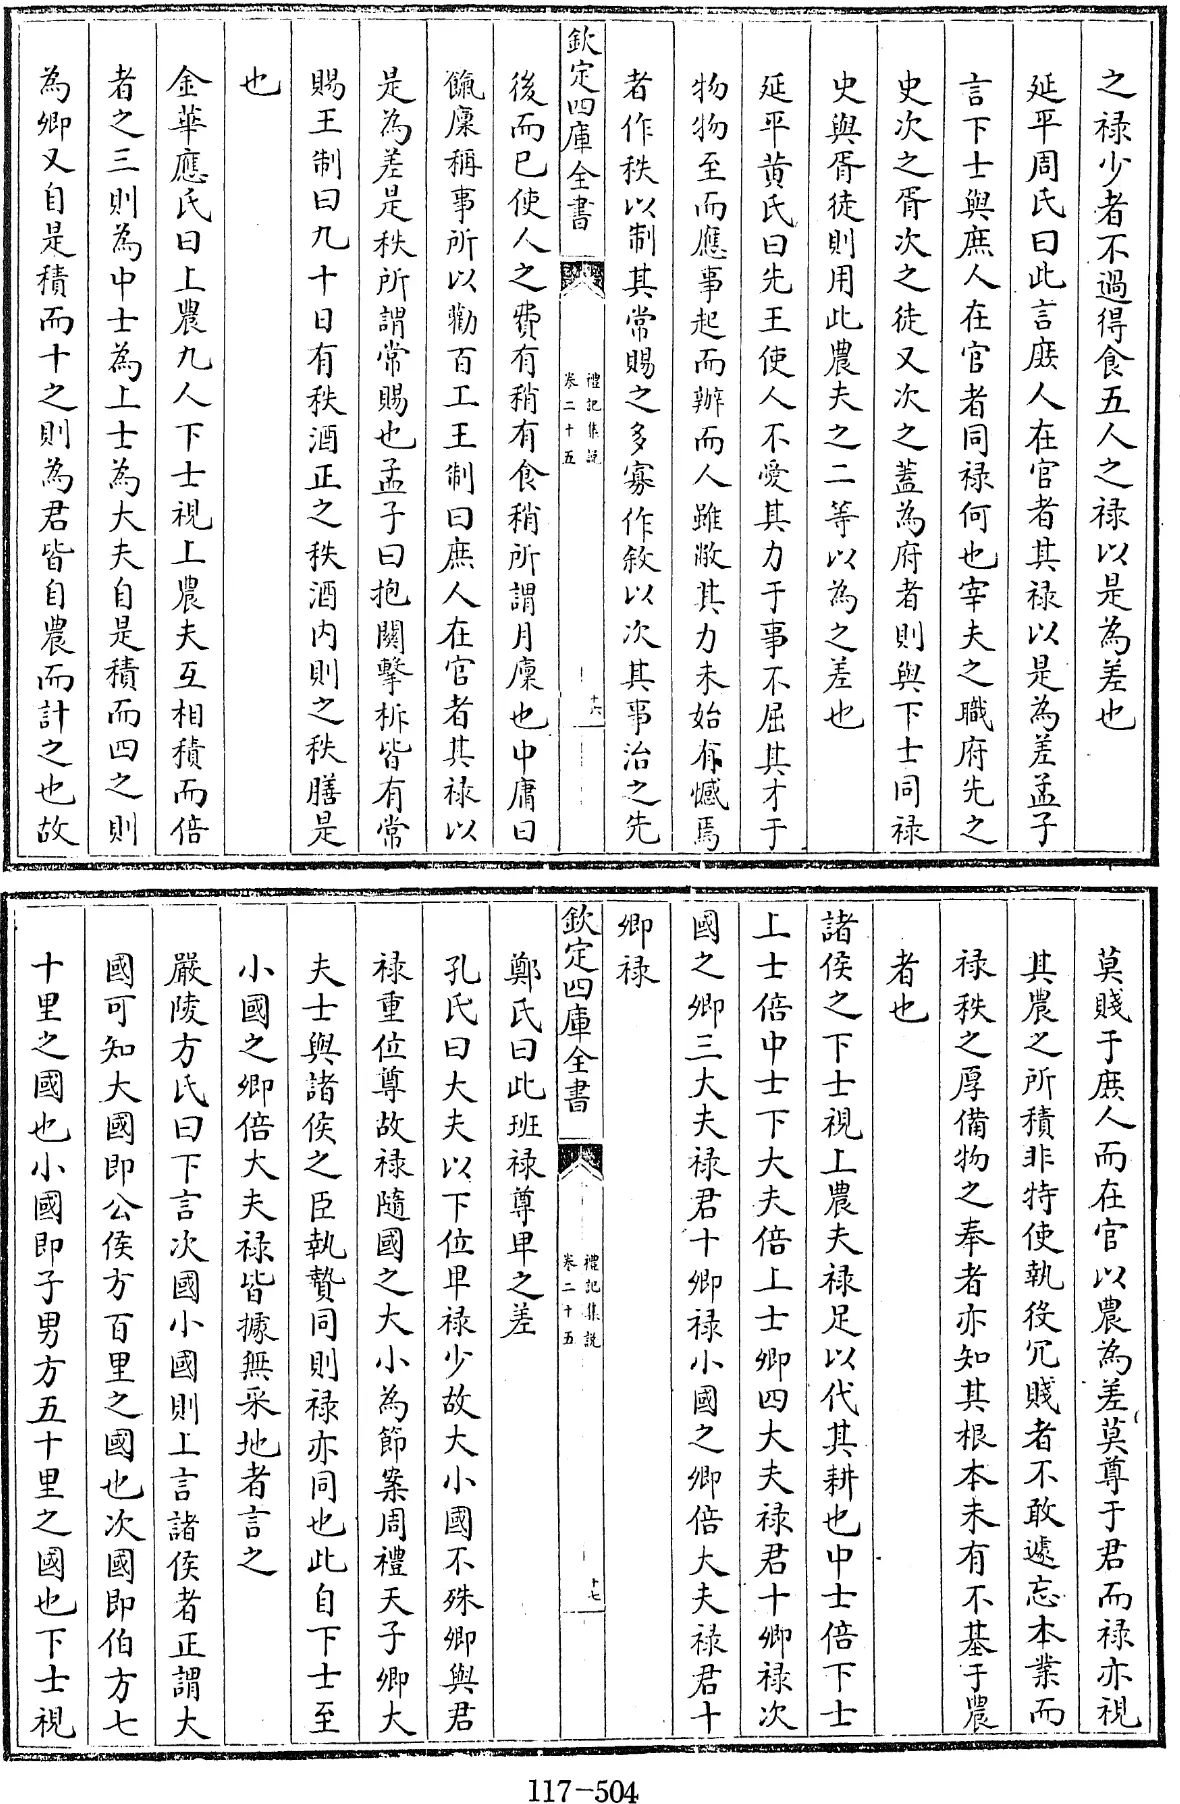 之禄少者不過得食五人之禄以是為差也
延平周氏曰此言庶人在官者其禄以是為差孟子
言下士與庶人在官者同禄何也宰夫之職府先之
史次之胥次之徒又次之蓋為府者則與下士同禄
史與胥徒則用此農夫之二等以為之差也
延平黄氏曰先王使人不愛其力于事不屈其才于
物物至而應事起而辦而人雖敝其力未始有憾焉
者作秩以制其常賜之多寡作敘以次其事治之先
欽定四庫全書
禮記集説
卷二十五
十六
後而已使人之費有稍有食稍所謂月廩也中庸曰
餼廩稱事所以勸百工王制曰庶人在官者其禄以
是為差是秩所謂常賜也孟子曰抱關擊柝皆有常
賜王制曰九十日有秩酒正之秩酒内則之秩膳是
也
金華應氏曰上農九人下士視上農夫互相積而倍
者之三則為中士為上士為大夫自是積而四之則
為卿又自是積而十之則為君皆自農而計之也故
莫賤于庶人而在官以農為差莫尊于君而禄亦視
其農之所積非特使執役冗賤者不敢遽忘本業而
禄秩之厚備物之奉者亦知其根本未有不基于農
者也
諸侯之下士視上農夫禄足以代其耕也中士倍下士
上士倍中士下大夫倍上士卿四大夫禄君十卿禄次
國之卿三大夫禄君十卿禄小國之卿倍大夫禄君十
卿禄
欽定四庫全書
禮記集説
卷二十五
十七
鄭氏曰此班禄尊卑之差
孔氏曰大夫以下位卑禄少故大小國不殊卿與君
禄重位尊故禄隨國之大小為節案周禮天子卿大
夫士與諸侯之臣執贄同則禄亦同也此自下士至
小國之卿倍大夫禄皆據無采地者言之
嚴陵方氏曰下言次國小國則上言諸侯者正謂大
國可知大國即公侯方百里之國也次國即伯方七
十里之國也小國即子男方五十里之國也下士視
117-504